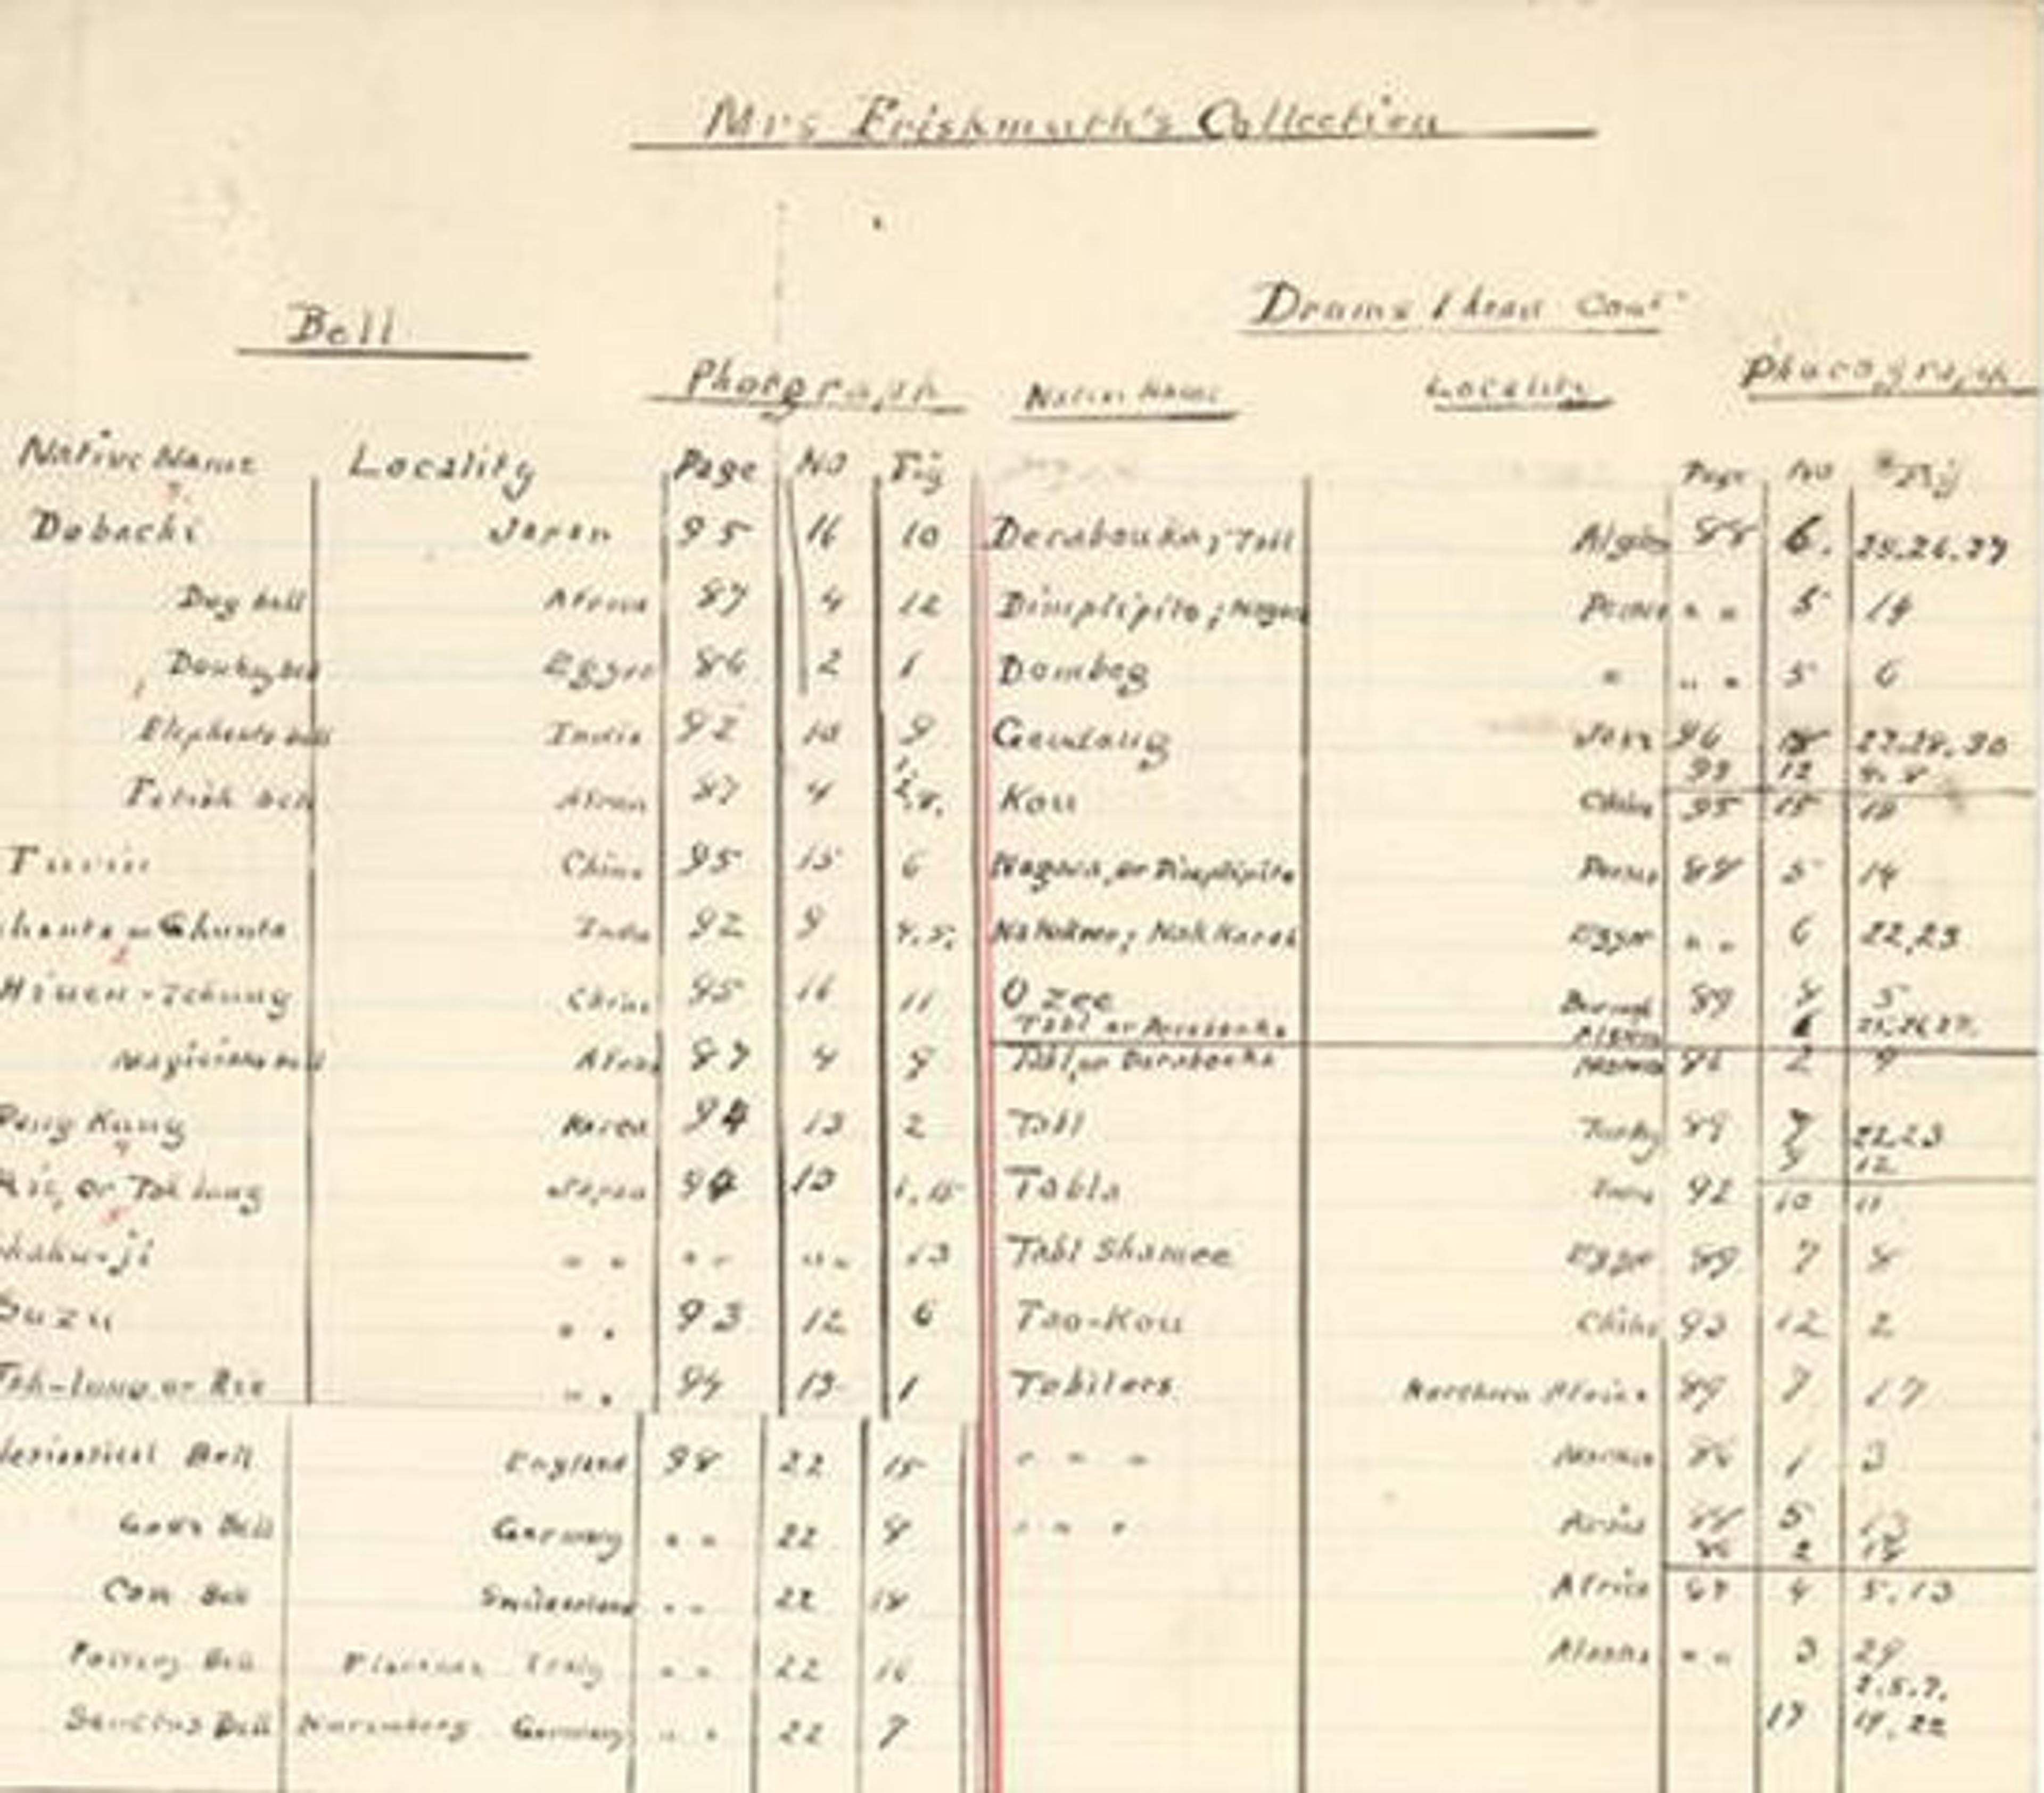 Mrs Friskmuth's Collection
Bell
Photgraph
Native Name Locality Page No Fig
Dobachi Japan 95 16 10
Dog bell Africa 87 4 12
Donkey bell Egypt 86 2 1
Elephants bell India 92 10 9
Fetish bell Africa 87 4
China 95 15 6
Ghunta India 92 9 4.5.
Hiuen-Tchung China 95 16 11
Magicians bell Africa 87 4 8
Kung Korea 94 13 2
or Tak lung Japan 94 13 1.15
" " " " " " 13
Suzu " " 93 12 6
Tak-lung or Rie " " 94 13 1
Bell England 98 22 15
Goat Bell Germany " " 22 8
Cow Bell Switzerland " " 22 14
Pottery Bell Florence Italy " " 22 16
Sanctus Bell Nuremberg Germany " " 22 7
Drums 1 head Cont
Native Name Locality Photograph
Page No Fig
Derabouka; Tabl Algiers 88 6. 25.26.27
Dimplipito; Nagara Persia " " 5 14
Dombeg " " " 5 6
Gendang Java 96 18 27.28.30
93 12
Kou China 95 15 10
Nagara, or Dimplipito Persia 88 5 14
Egypt " " 6 22,23
Ozee Burmah 89 8 5
Tabl or Derabouka Algiers 6 25,26,27.
Tabl, or Derabouka 86 2 9
Tabl Turkey 89 7 22,23
9 12
Tabla India 92 10 11
Tabl Shamee Egypt 89 7 8
Tao-Kou China 93 12 2
Tobilets Northern Africa 89 7 17
" " " 86 1 3
" " " 88 5 13
86 2 18
Africa 87 4 5.13
Alaska " " 3 29
2.5.7.
17 19.22